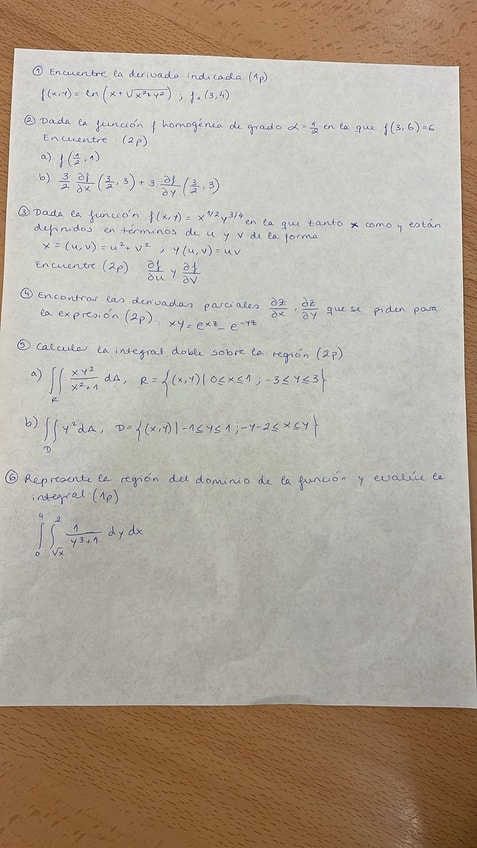 ① Encuentre la derivada indicada (1p)
f(x,y) = ln (x + √x²+y²) , fx (3,4)
② Dada la función f homogénea de grado α = 1/2 en la que f(3,6)=6
Encuentre (2p)
a) f(1/2, 1)
b) 3/2 ∂f/∂x (3/2, 3) + 3 ∂f/∂y (3/2, 3)
③ Dada la función f(x,y) = x^1/2 y^3/4 en la que tanto x como y están
definidos en términos de u y v de la forma
x = (u,v) = u²+v² , y(u,v) = uv
Encuentre (2p) ∂f/∂u y ∂f/∂v
④ Encontrar las derivadas parciales ∂z/∂x , ∂z/∂y que se piden para
la expresión (2p) xy = e^xz - e^-yz
⑤ Calcular la integral doble sobre la región (2p)
a) ∬_R xy²/x²+1 dA, R = {(x,y) | 0≤x≤1 ; -3≤y≤3}
b) ∬_D y² dA, D = {(x,y) | -1≤y≤1 ; -y-2≤x≤y}
⑥ Represente la región del dominio de la función y evalúe la
integral (1p)
∫_0^4 ∫_√x^2 1/y³+1 dy dx